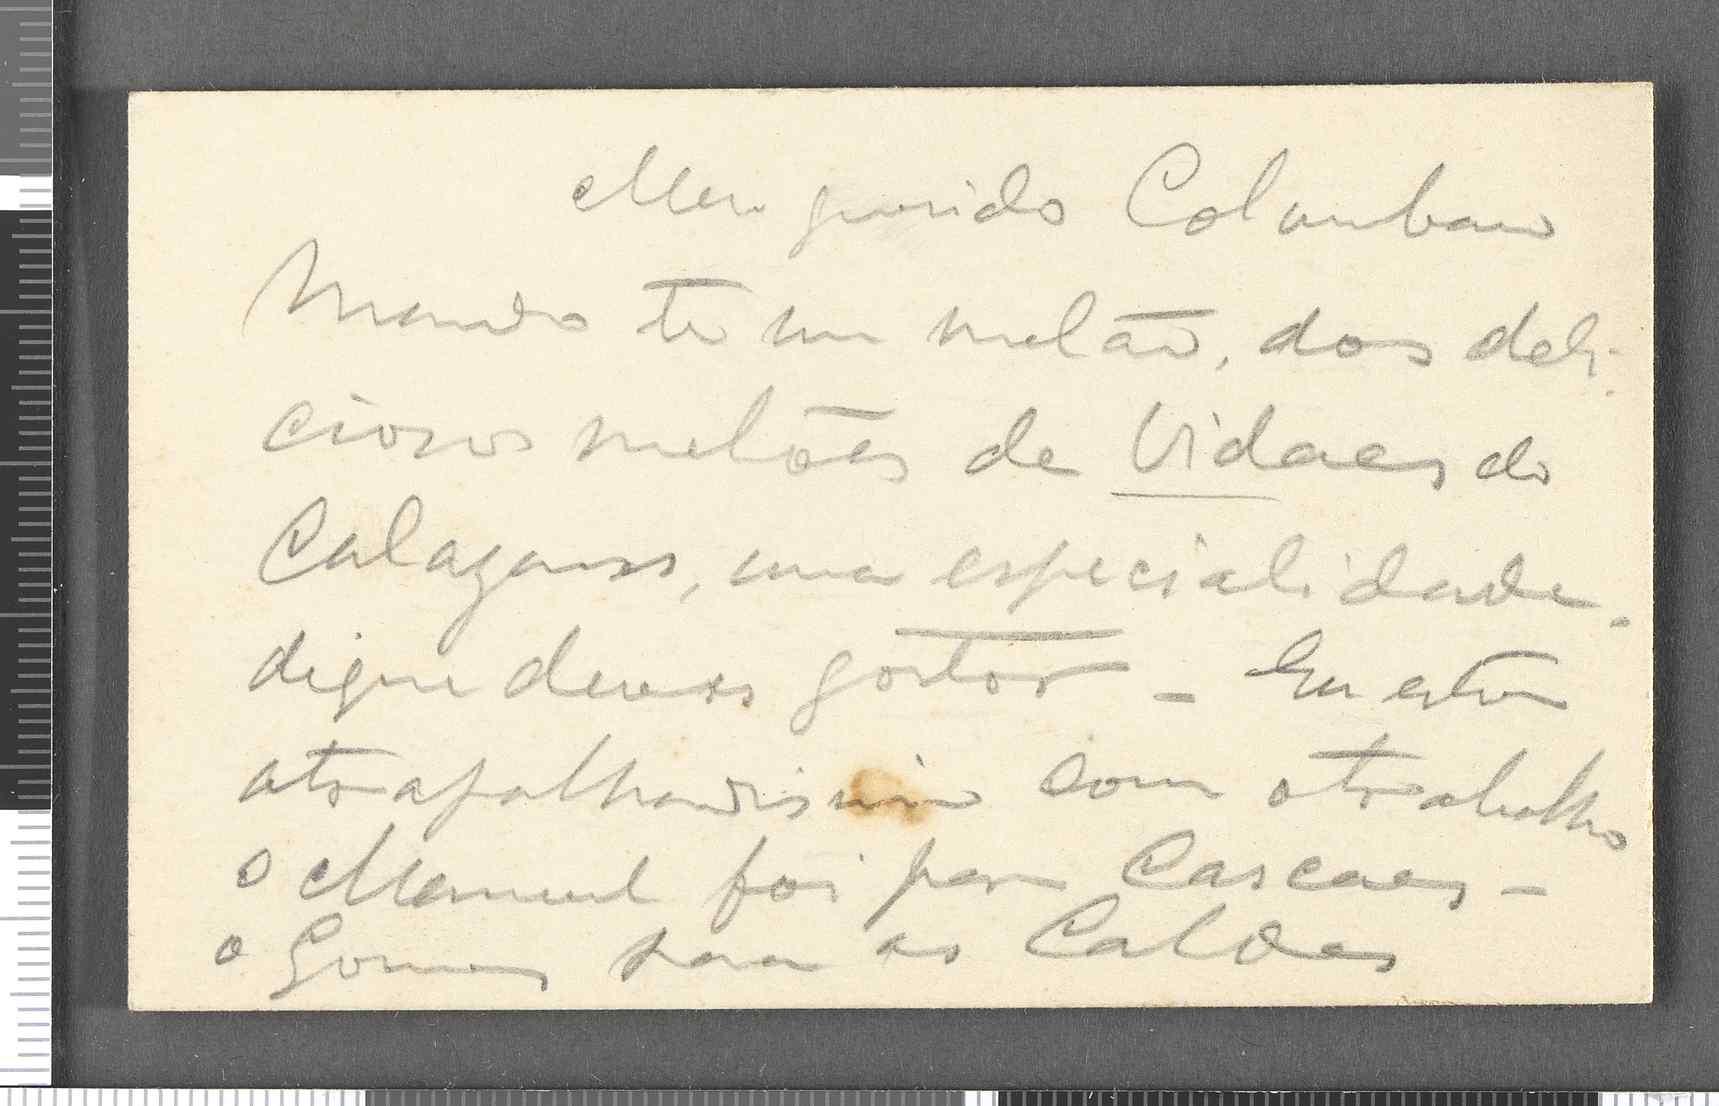 Meu querido Columbano
Mando te um melão, dos deli-
ciosos melões de Vidaes do
Calazans, uma especialidade.
digne deveras gostos - Eu estou
atrapalhadissimo com o trabalho
o Manuel foi para Cascaes -
o Gomes para as Caldas